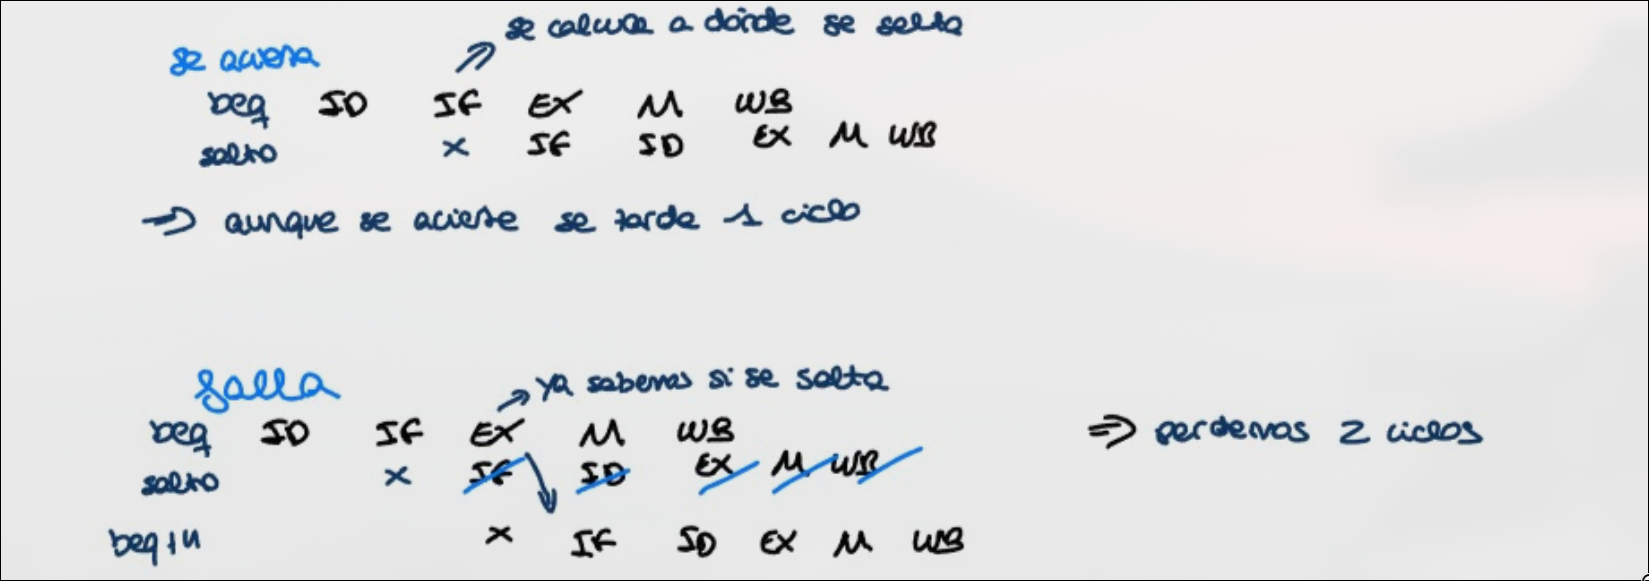 se calcula a dónde se salta
se acierta
beq ID IF EX M WB
salto x IF ID EX M WB
=> aunque se acierte se tarda 1 ciclo
falla
-> ya sabemos si se salta
beq ID IF EX M WB => perdemos 2 ciclos
salto x IF ID EX M WB
beq+4 x IF ID EX M WB